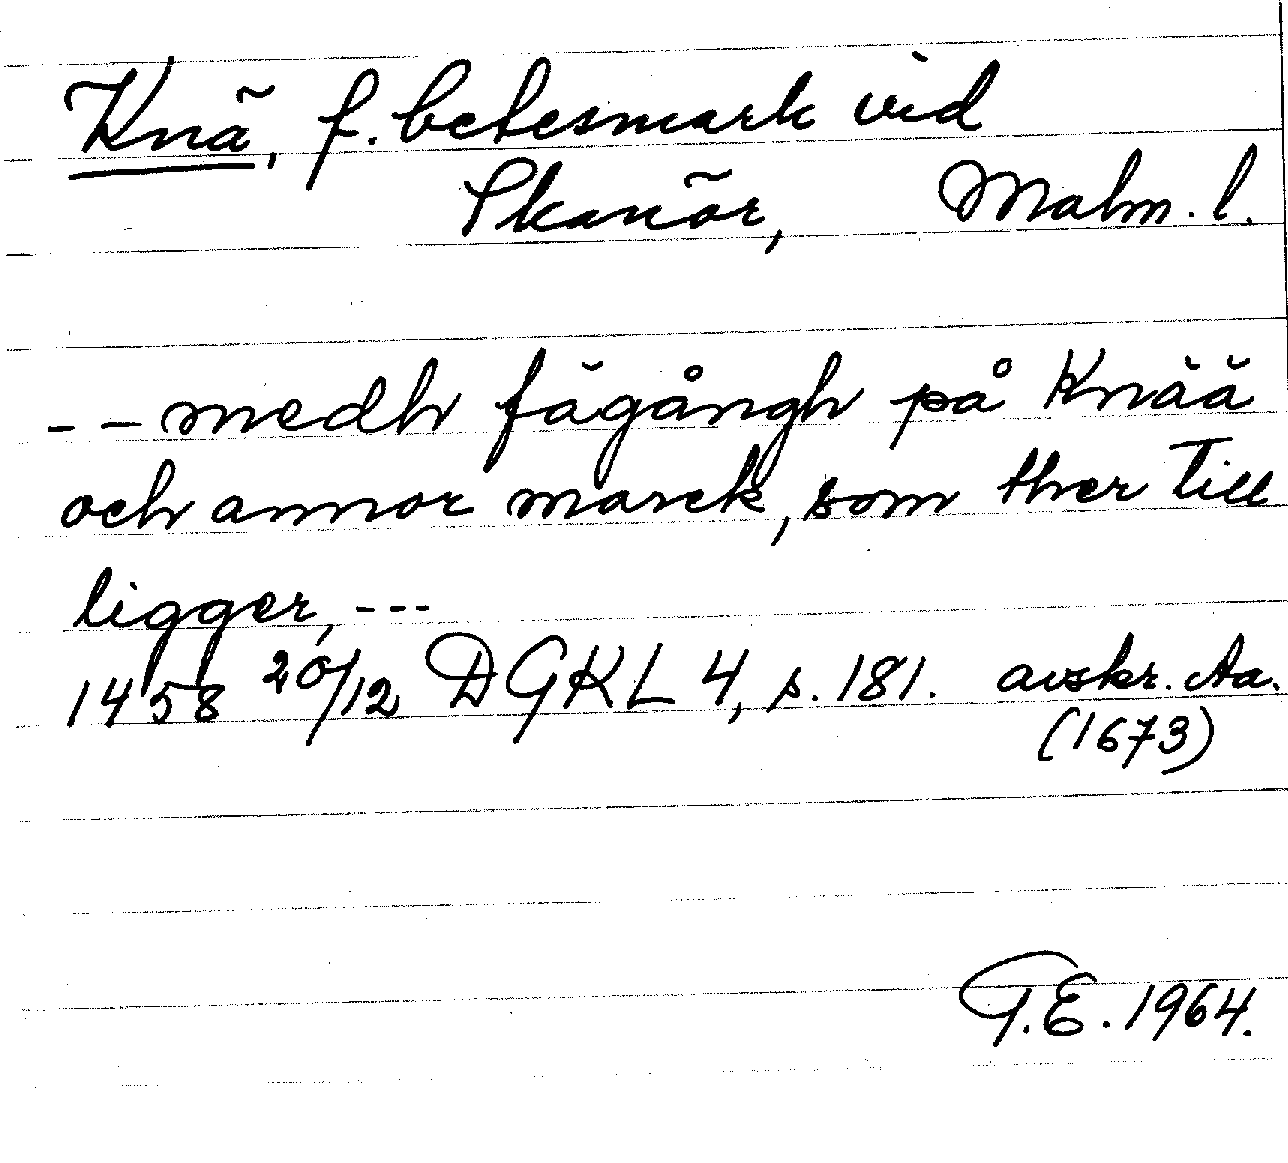 Knä, f. betesmark vid
Skanör, Malm. l.
- - medh fägångh på Knää
och annor marck, som ther till
ligger, ---
1458 20/12 DGKL 4, s. 181. avskr. Aa.
(1673)
G.E. 1964.